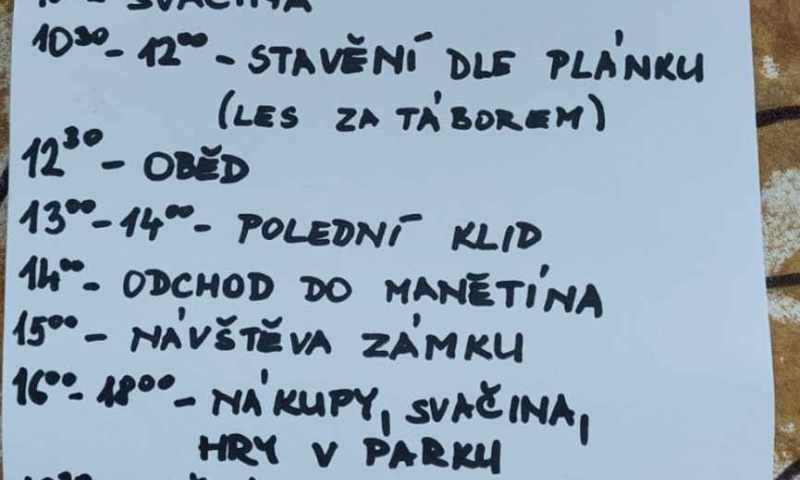 SVAČINA
10³⁰ - 12⁰⁰ - STAVĚNÍ DLE PLÁNKU
(LES ZA TÁBOREM)
12³⁰ - OBĚD
13⁰⁰ - 14⁰⁰ - POLEDNÍ KLID
14⁰⁰ - ODCHOD DO MANĚTÍNA
15⁰⁰ - NÁVŠTĚVA ZÁMKU
16⁰⁰ - 18⁰⁰ - NÁKUPY, SVAČINA,
HRY V PARKU